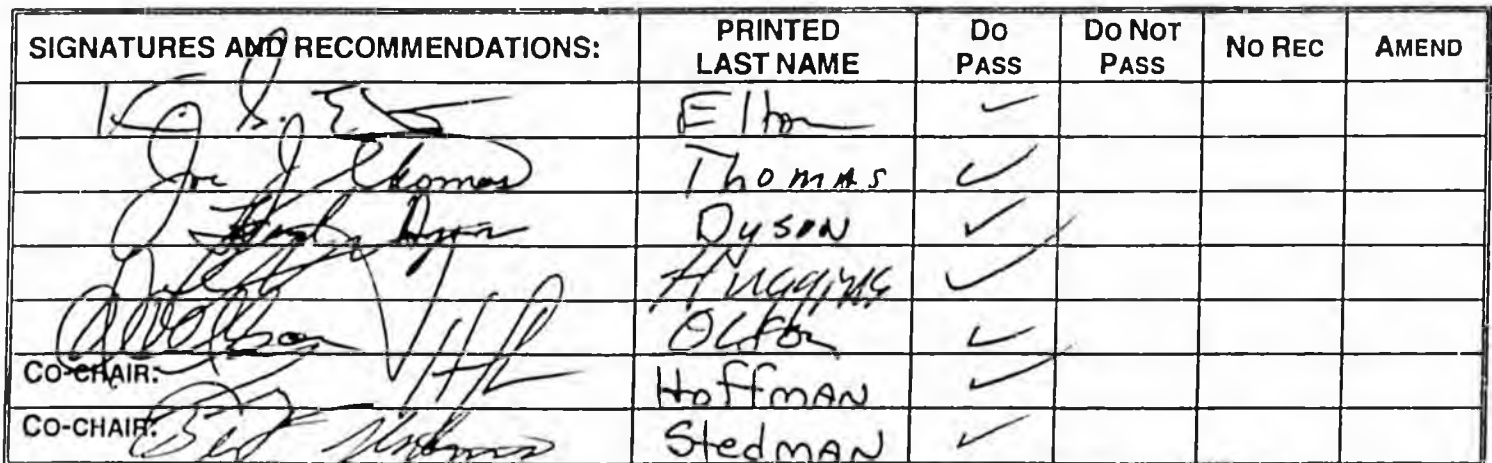 SIGNATURES AND RECOMMENDATIONS: PRINTED LAST NAME DO PASS DO NOT PASS NO REC AMEND
Elton ✓
Joe J Thomas Thomas ✓
Dyson ✓
Huggins ✓
Olson ✓
CO-CHAIR: Hoffman ✓
CO-CHAIR: Bert Stedman Stedman ✓